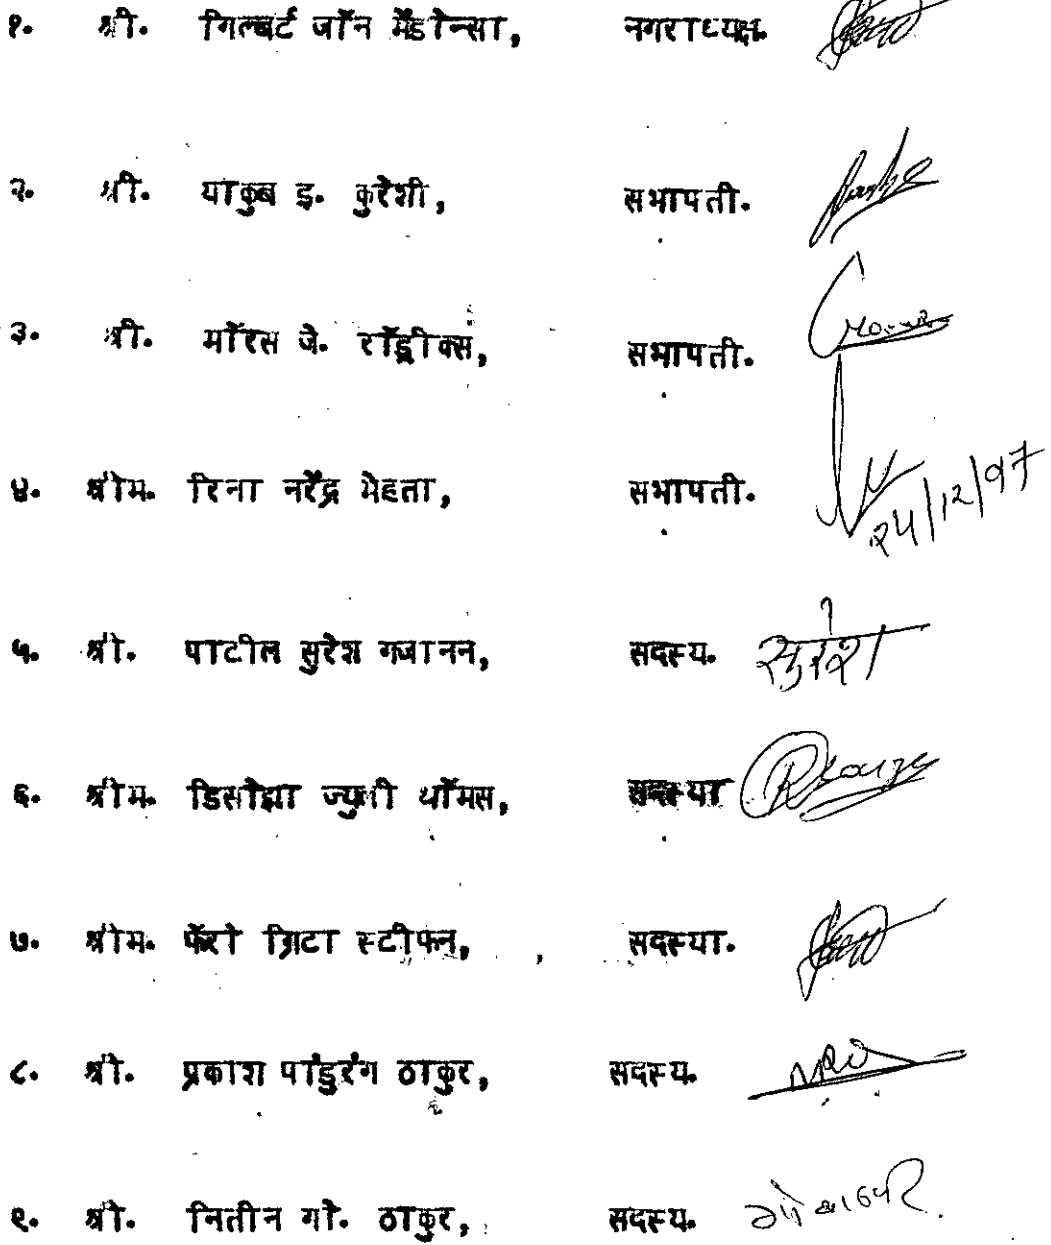 १. श्री. गिल्बर्ट जॉन मेंडोन्सा, नगराध्यक्ष.
२. श्री. याकुब इ. कुरेशी, सभापती.
३. श्री. मॉरस जे. रॉड्रीक्स, सभापती.
४. श्रीम. रिना नरेंद्र मेहता, सभापती. २४/12/97
५. श्री. पाटील सुरेश गजानन, सदस्य. सुरेश
६. श्रीम. डिसोझा ज्युली थॉमस, सदस्या
७. श्रीम. फॅरो ग्रिटा स्टीफन, सदस्या.
८. श्री. प्रकाश पांडुरंग ठाकुर, सदस्य.
९. श्री. नितीन गो. ठाकुर, सदस्य.